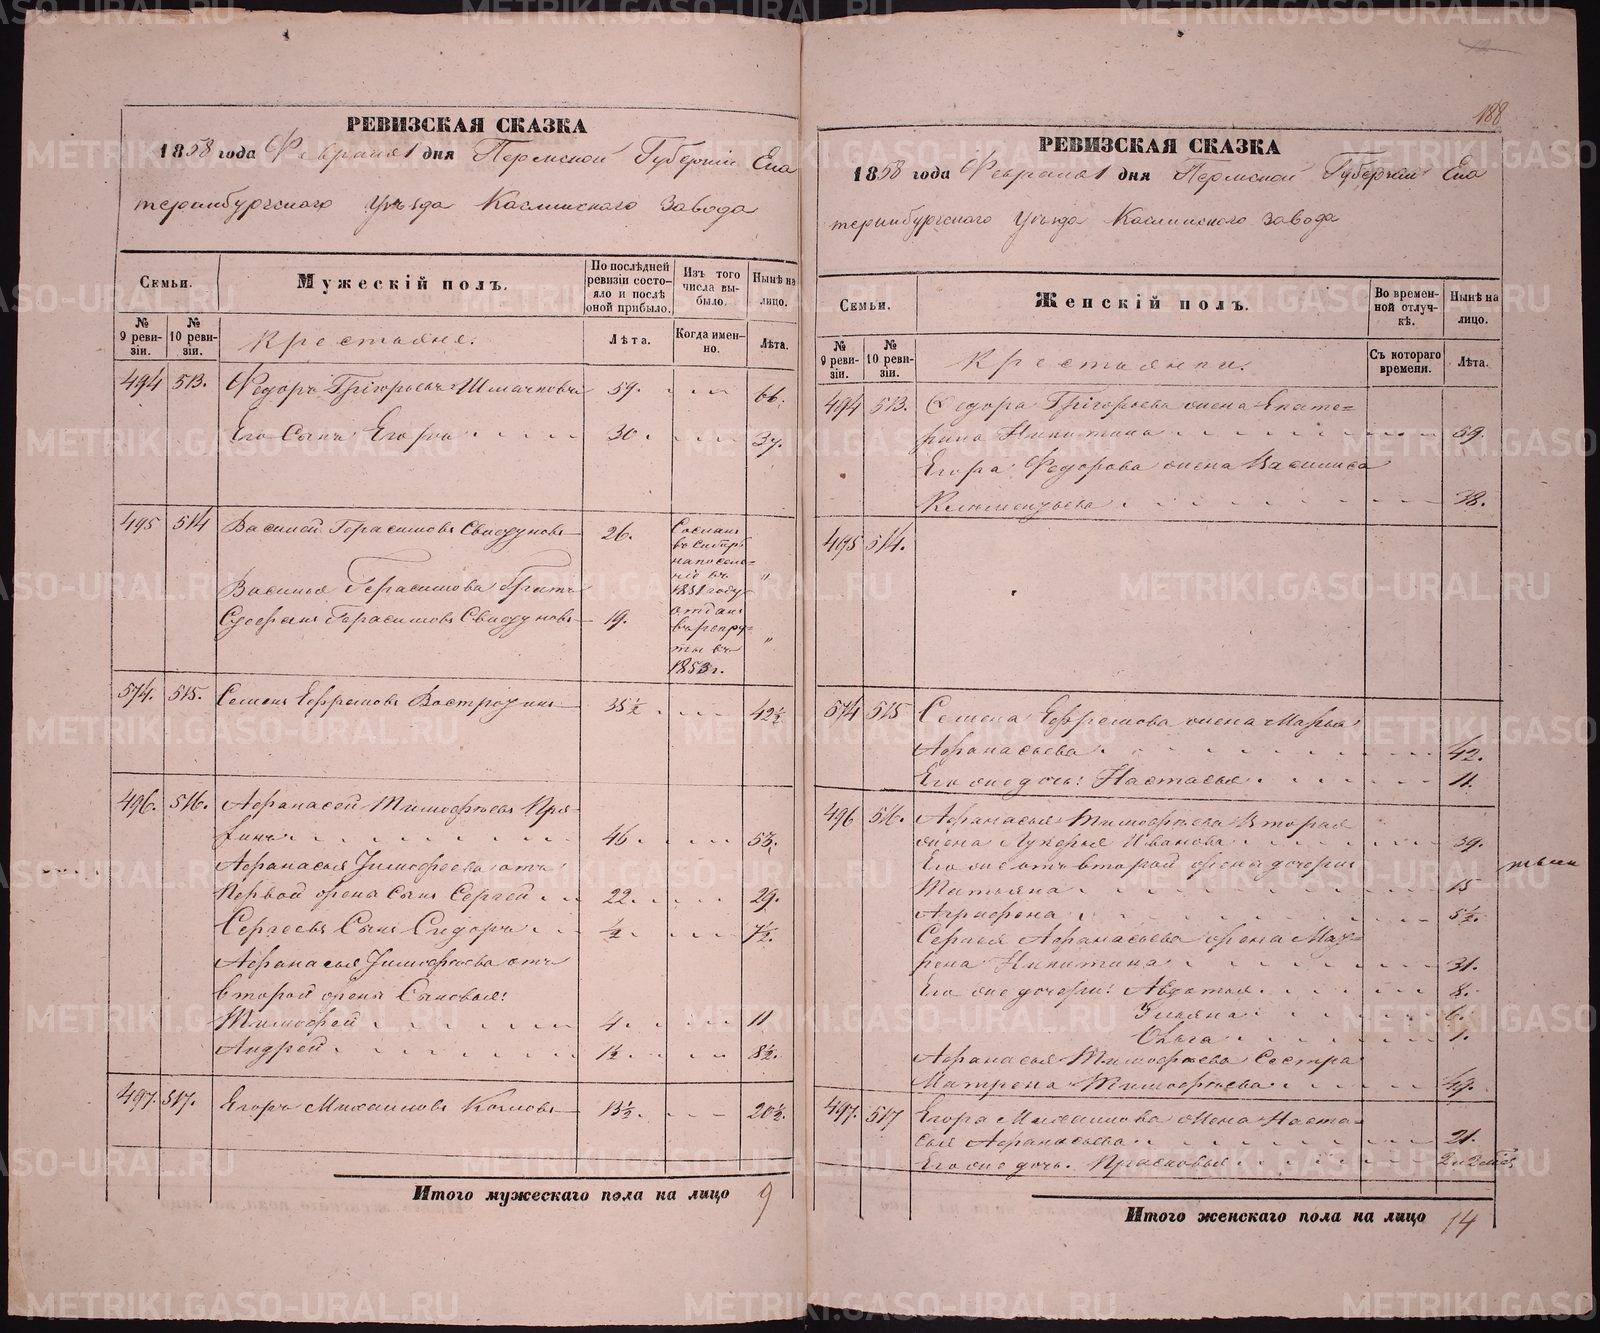 188
РЕВИЗСКАЯ СКАЗКА
1858 года Февраля 1 дня Пермской Губерніи Ека
теринбургскаго Уѣзда Каслинскаго Завода
Семьи.
Мужескій полъ.
По послѣдней ревизіи состояло и послѣ оной прибыло.
Изъ того числа выбыло.
Нынѣ на лицо.
№ 9 ревизіи.
№ 10 ревизіи.
Крестьяне:
Лѣта.
Когда именно.
Лѣта.
494 513. Федоръ Григорьевъ 59. 66.
Его Сынъ Егоръ 30. 37.
495 514 Василей Герасимовъ 26. Сосланъ
въ Сибирь
на поселе-
ніе въ
1851 году "
Василья Герасимова братъ
Герасимовъ 19. отданъ
въ рекру-
ты въ "
1853 г.
574. 515. Семенъ Ефремовъ Востротинъ 35½ 42½
496. 516. Афанасей Тимофѣевъ Пря-
46 53.
Афанасья Тимофеева отъ
Первой жены Сынъ Сергей 22. 29.
Сергѣевъ Сынъ Сидоръ ½ 7½.
Афанасья Тимофѣева отъ
второй жены Сыновья:
Тимофей 4. 11
Андрей 1½ 8½.
497. 517. Егоръ Михаиловъ Козловъ 13½. 20½.
Итого мужескаго пола на лицо 9
РЕВИЗСКАЯ СКАЗКА
1858 года Февраля 1 дня Пермской Губерніи Ека
теринбургскаго Уѣзда Каслинскаго завода
Семьи.
Женскій полъ.
Во временной отлучкѣ.
Нынѣ на лицо.
№ 9 ревизіи.
№ 10 ревизіи.
Крестьянки.
Съ котораго времени.
Лѣта.
494 513. Федора Григорьева жена Екате-
рина Никитина 69.
Егора Федорова жена Василиса
Клементьева 38.
495 514.
574 515 Семена Ефремова жена Марья
Афанасьева 42.
Его же дочь: Настасья 11.
496 516. Афанасья Тимофѣева вторая
жена Лукерья Иванова 39.
Его же отъ второй жена дочери
Татьяна 15
Аграфена 5½.
Сергея Афанасьева жена Мат-
рена Никитина 31.
Его же дочери: Авдотья 8.
Ульяна 6.
Ольга 1.
Афанасья Тимофѣева Сестра
Матрена Тимофѣева 49.
497. 517 Егора Михаилова жена Наста-
сья Афанасьева 21.
Его же дочь. Прасковья
Итого женскаго пола на лицо 14
METRIKI.GASO-URAL.RU